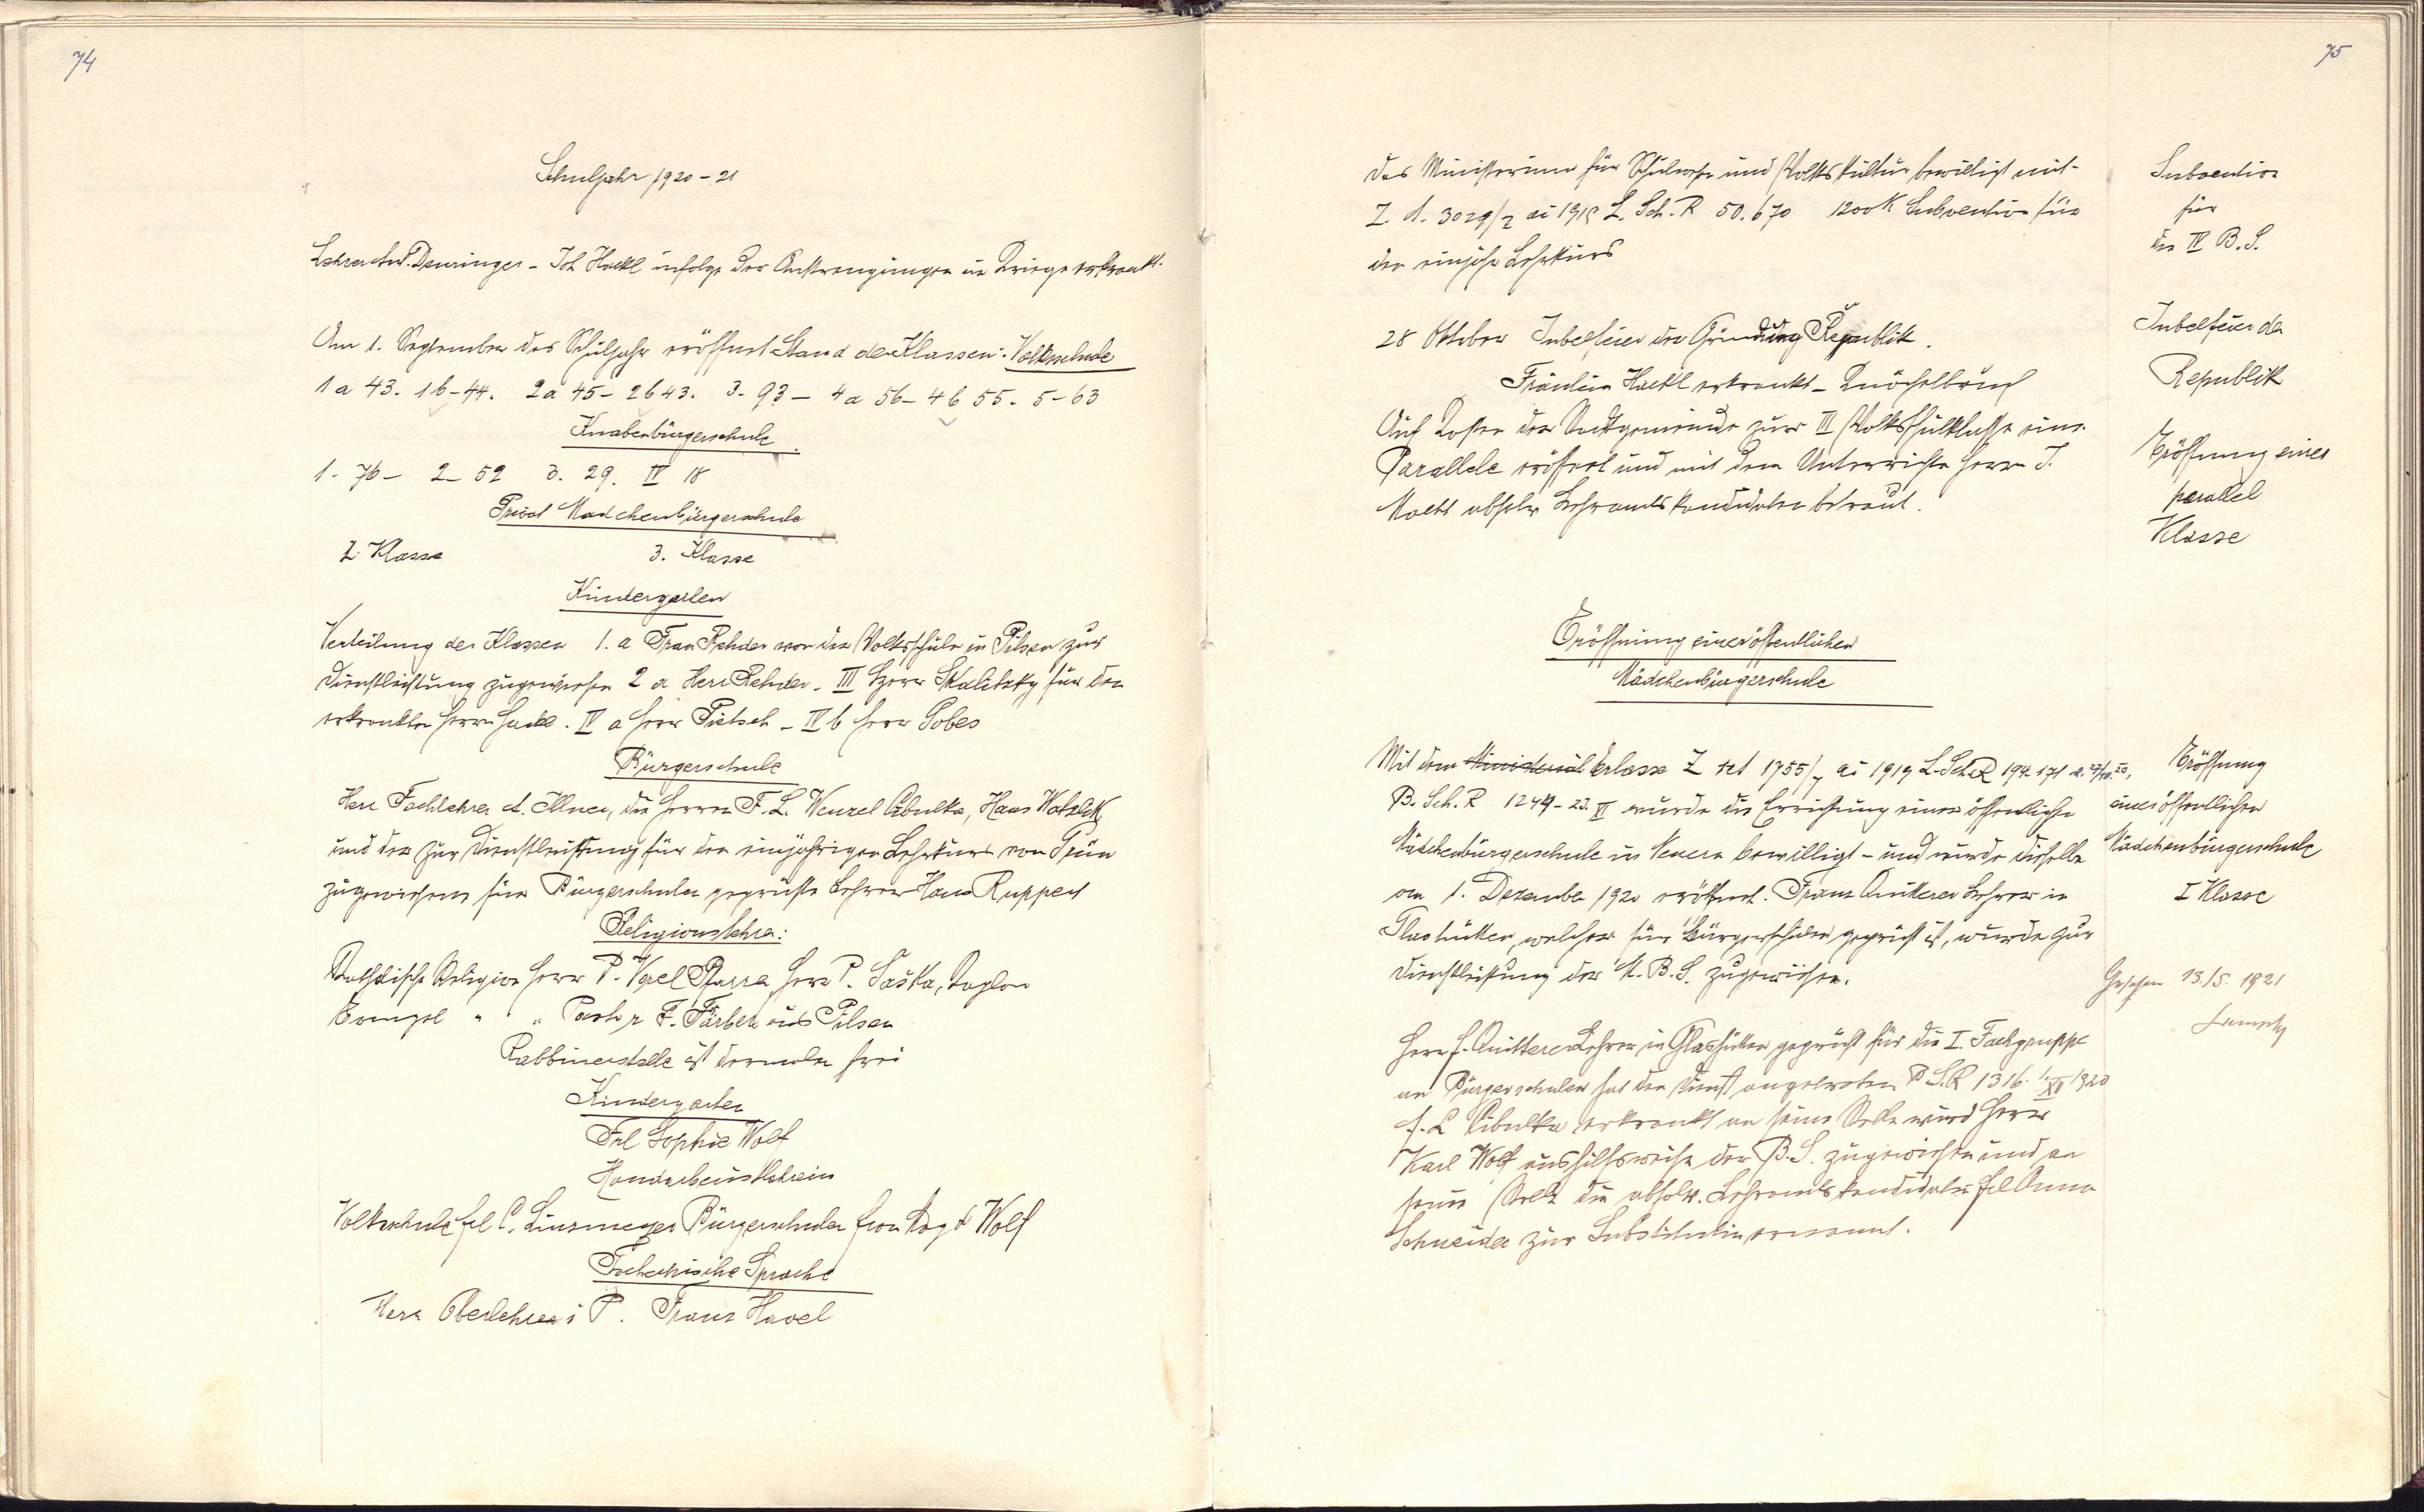 74
Schuljahr 1920-21
Lehrer Ant. Denringer - Joh Hackl infolge der Anstrengungen im Kriege erkrankt.
Am 1. September das Schuljahr eröffnet Stand der Klassen: Volksschule
1a 43. 1b-44. 2a 45- 2b 43. 3- 93- 4a 56- 4b 55. 5-63
Knabenbürgerschule.
1. 76- 2- 52 3. 29. IV 18
Privat Mädchenbürgerschule
2. Klasse 3. Klasse
Kindergarten
Verteilung der Klassen 1. a Frau Rehder von der Volksschule in Pilsen zur
Dienstleistung zugewiesen 2 a Herr Rehder. III Herr Skalitzky für den
erkrankten Herrn Hackl. IV a Herr Pietsch - IV b Herr Pobes
Bürgerschule
Herr Fachlehrer A. Illner, die Herren F. L. Wenzel Cibulka, Hans Watzlik
und der zur Dienstleistung für den einjährigen Lehrkurs von Grün
zugewiesene für Bürgerschulen geprüfte Lehrer Hans Ruppert
Religionslehrer:
Katholische Religion Herr P. Pfarrer Herr P. Saška, Kaplan
Evangel " " Pastor F. Färber aus Pilsen
Rabbinerstelle ist dermalen frei
Kindergarten
Frl Sophie Wolf
Handarbeitslehrerin
Volksschule Frl C. Linsmeyer Bürgerschulen Frau Wolf
Tschechische Sprache
Herr Oberlehrer i P. Franz Havel
75
Das Ministerium für Schulwesen und Volkskultur bewilligt mit
Z. d. 3029/2 ai 1919 L. Sch. R 50.670 1200 K Subvention für
den einjähr Lehrkurs
Subvention
für
die IV B. S.
28 Oktober Jubelfeier der Gründung Č Republik.
Jubelfeier der
Republik
Fräulein Hackl erkrankt - Knöchelbruch
Auf Kosten der Stadtgemeinde zur III Volksschulklasse eine
Parallele eröffnet und mit dem Unterrichte Herrn J.
absolv Lehramtskandidaten betraut.
Eröffnung einer
parallel
Klasse
Eröffnung einer öffentlichen
Mädchenbürgerschule
Mit dem Ministerial Erlasse Z 1755/7 ai 1919 L. Sch. R 194.171 d. 27/10. 20,
B. Sch. R 1244- 23. XI wurde die Errichtung einer öffentliche
Mädchenbürgerschule in Neuern bewilligt - und wurde dieselbe
am 1. Dezember 1920 eröffnet. Franz Quitterer Lehrer in
Glashütten, welcher für Bürgerschulen geprüft ist, wurde zur
Dienstleistung der M. B. S. zugewiesen.
Eröffnung
einer öffentlichen
Mädchenbürgerschule
I Klasse
Gesehen 13./5. 1921
Herr F. Quitterer Lehrer in Glashütten geprüft für die I. Fachgruppe
an Bürgerschulen hat den Dienst angetreten B S. R 1316. 1. XII 1920
F. L Cibulka erkrankt an seine Stelle wird Herr
Karl Wolf aushilfsweise der B. S. zugewiesen und an
seine Stelle die absolv. Lehramtskandidatin Frl Anna
Schneider zur Substitutin ernannt.